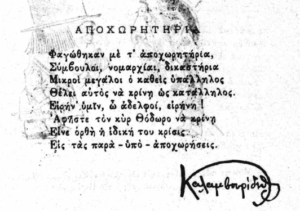 ΑΠΟΧΩΡΗΤΗΡΙΑ
Φαγώθηκαν μὲ τ' ἀποχωρητήρια,
Σύμβουλοι, νομαρχίαι, δικαστήρια
Μικροὶ μεγάλοι ὁ καθεὶς ὑπάλληλος
Θέλει αὐτὸς νὰ κρίνῃ ὡς κατάλληλος.
Εἰρήν' ὑμῖν, ὦ ἀδελφοί, εἰρήνη!
Ἀφῆστε τὸν κὺρ Θόδωρο νὰ κρίνῃ
Εἶνε ὀρθὴ ἡ ἰδική του κρίσις
Εἰς τὰς παρὰ-ὑπὸ-ἀποχωρήσεις.